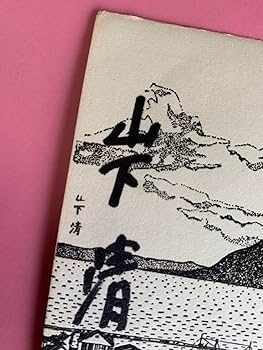 山下清
山下清